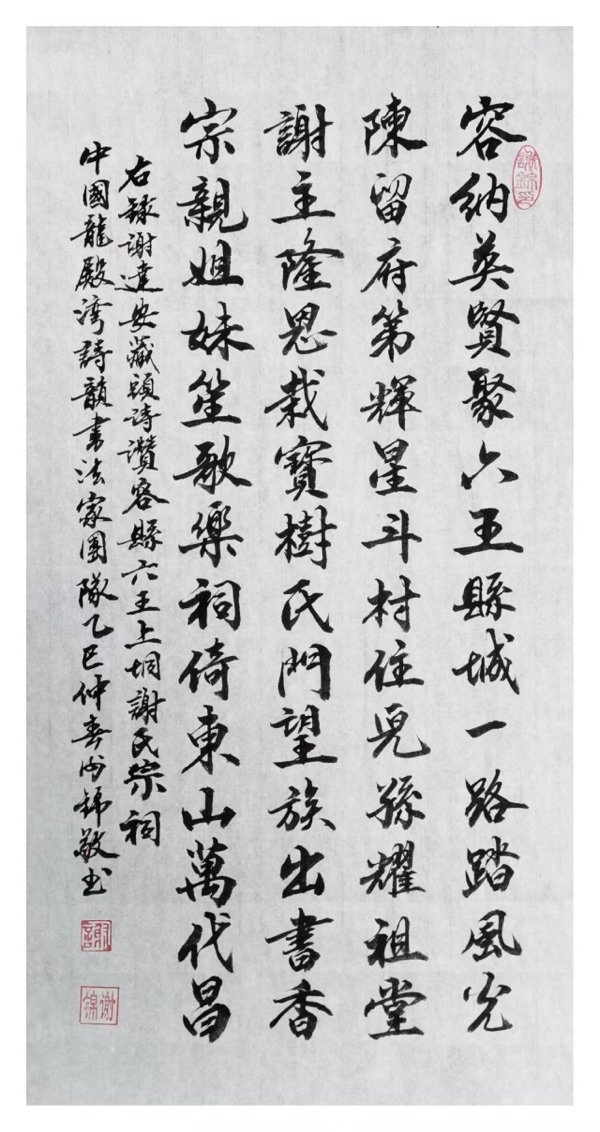 容納英賢聚六王縣城一路踏風光
陳留府第輝星斗村住兒孫耀祖堂
謝主隆恩栽寶樹氏門望族出書香
宗親姐妹笙歌樂祠倚東山萬代昌
右錄謝達安藏頭詩讚容縣六王上垌謝氏宗祠
中國龍殿灣詩韻書法家團隊乙巳仲春謝錦敬書
謝錦印
謝
謝錦